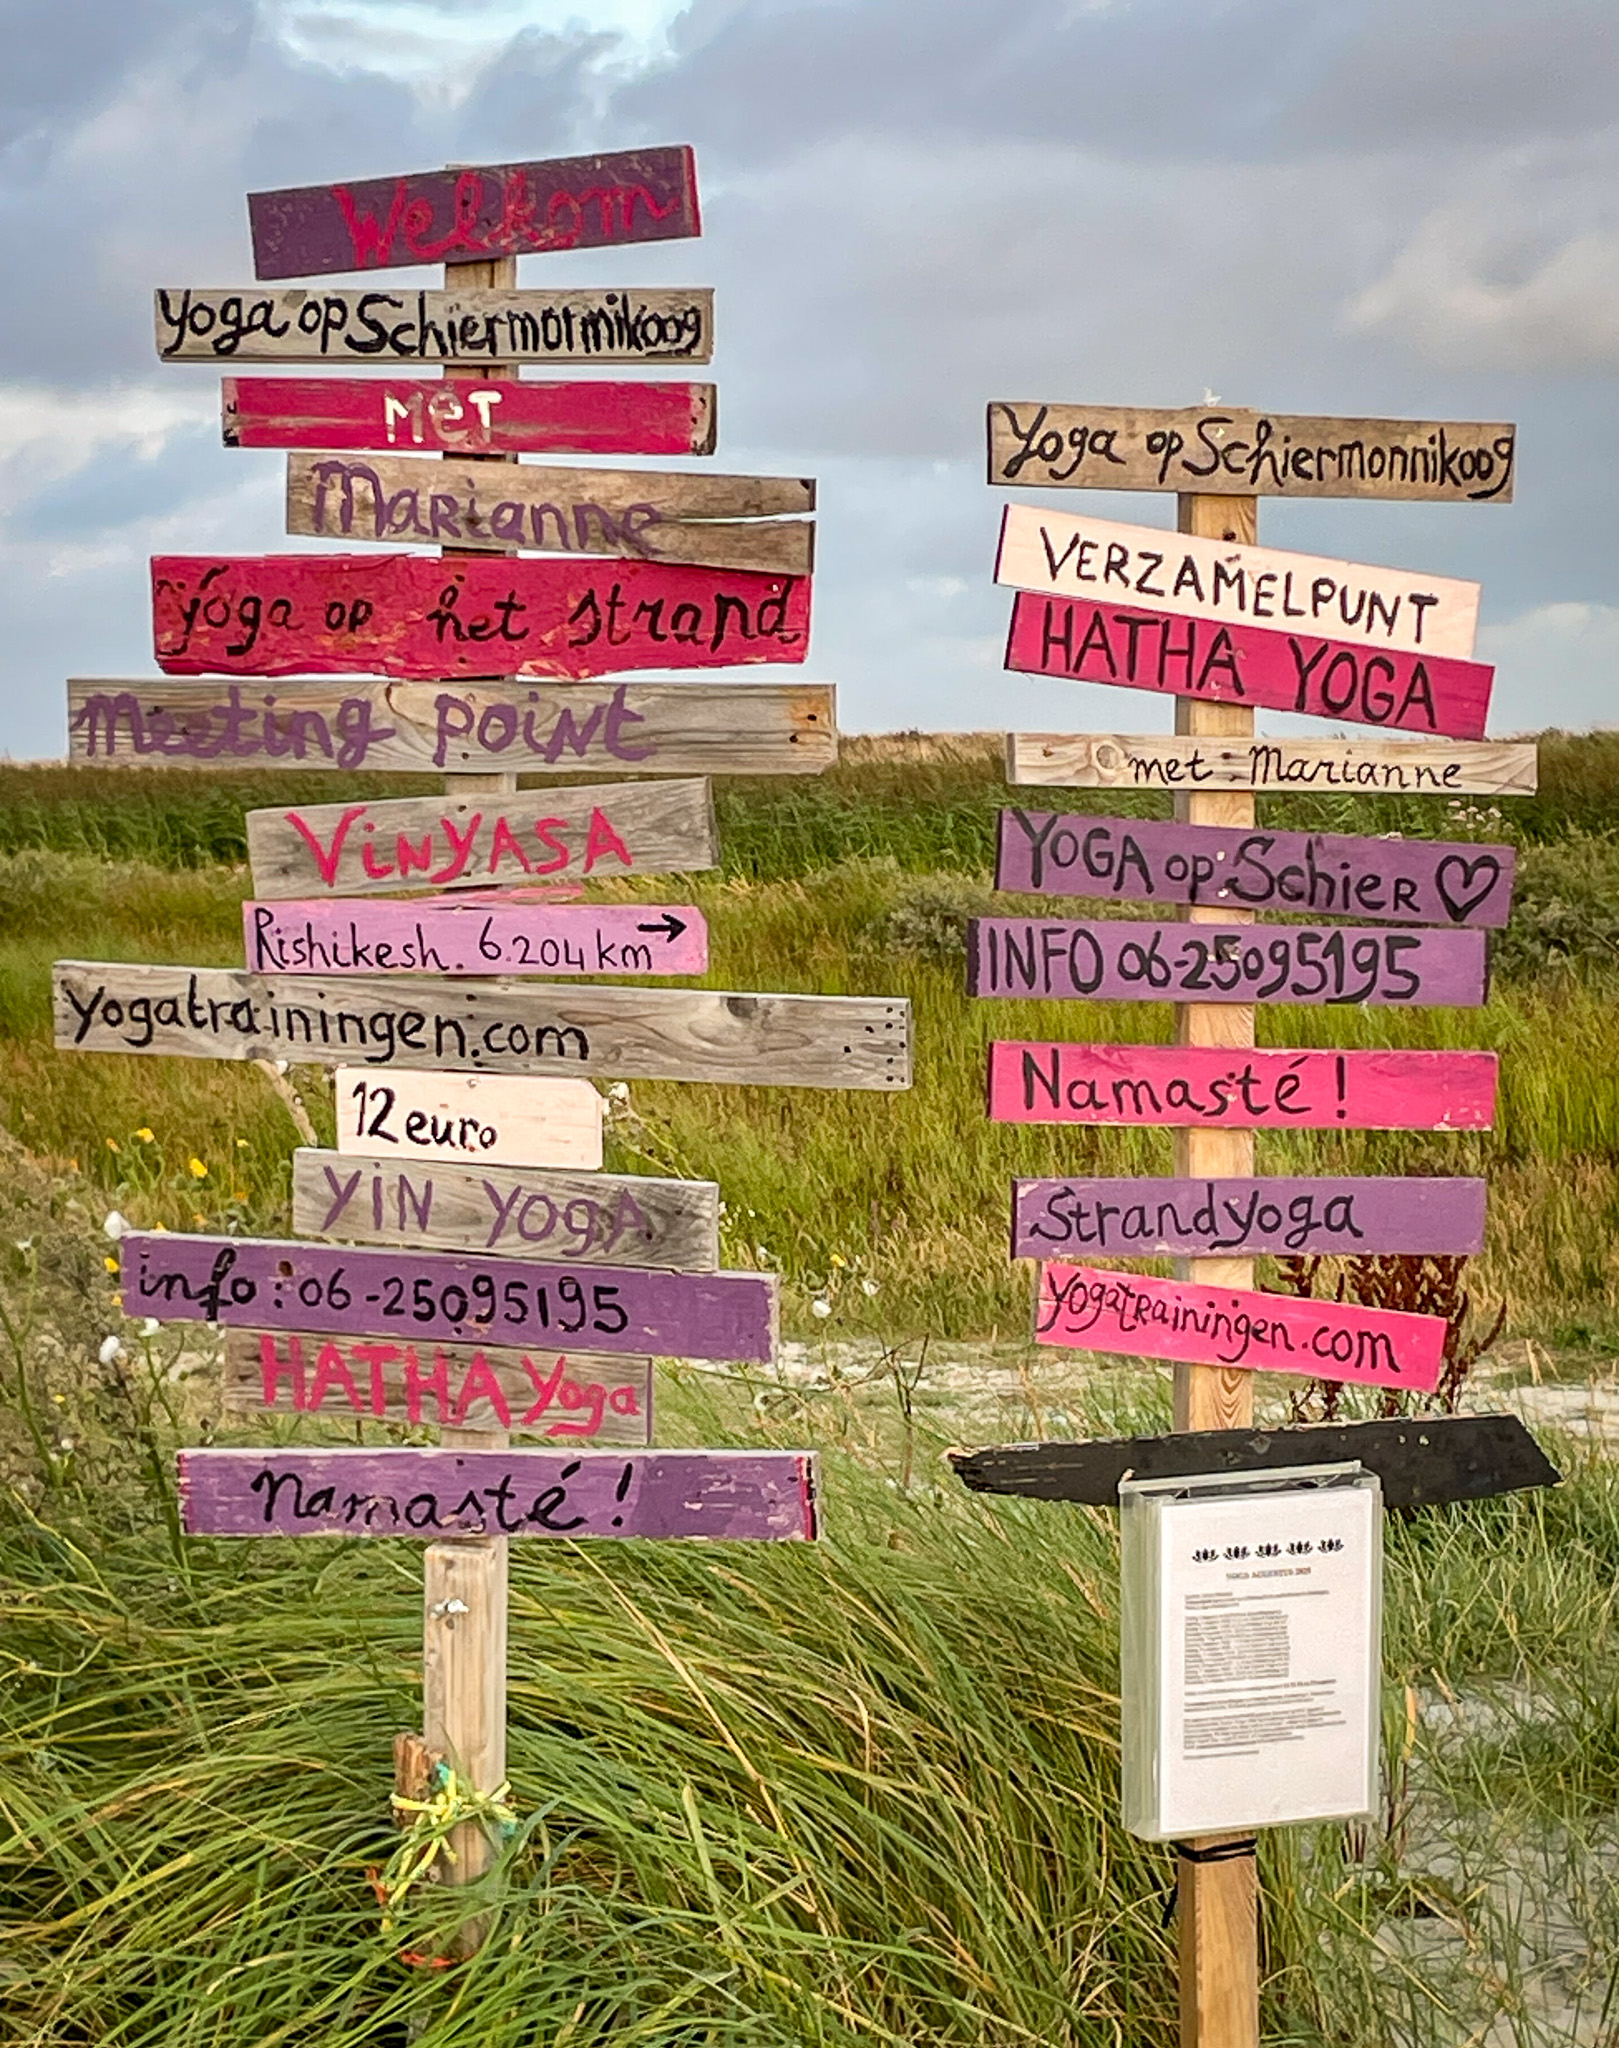 Welkom
Yoga op Schiermonnikoog
MeT
Marianne
yoga op het strand
Meeting point
VinyASA
Rishikesh. 6.204 km →
yogatrainingen.com
12 euro
YiN YOgA
info: 06-25095195
HATHA Yoga
Namasté!
Yoga op Schiermonnikoog
VERZAMELPUNT
HATHA YOGA
met: Marianne
YOGA op Schier ♡
INFO 06-25095195
Namasté!
Strandyoga
yogatrainingen.com
YOGA AUGUSTUS